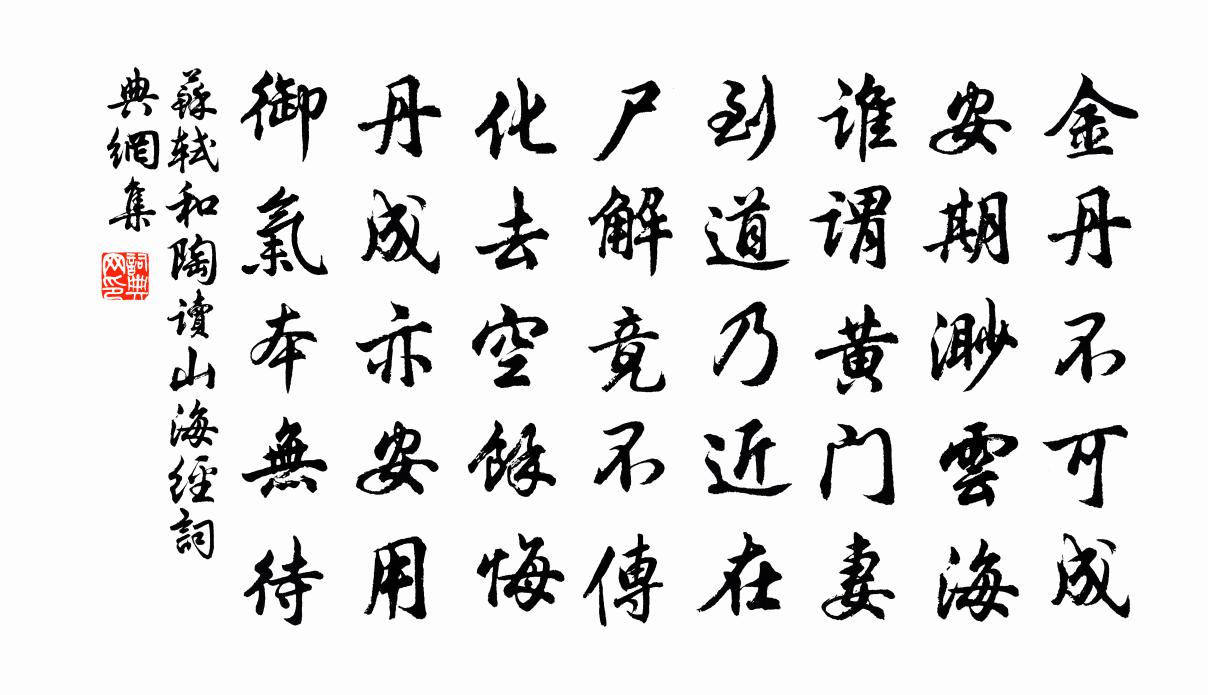 金丹不可成
安期渺雲海
誰謂黃门妻
到道乃近在
尸解竟不傳
化去空餘悔
丹成亦安用
御氣本無待
蘇軾和陶讀山海經詞
典網集
詞典
网印